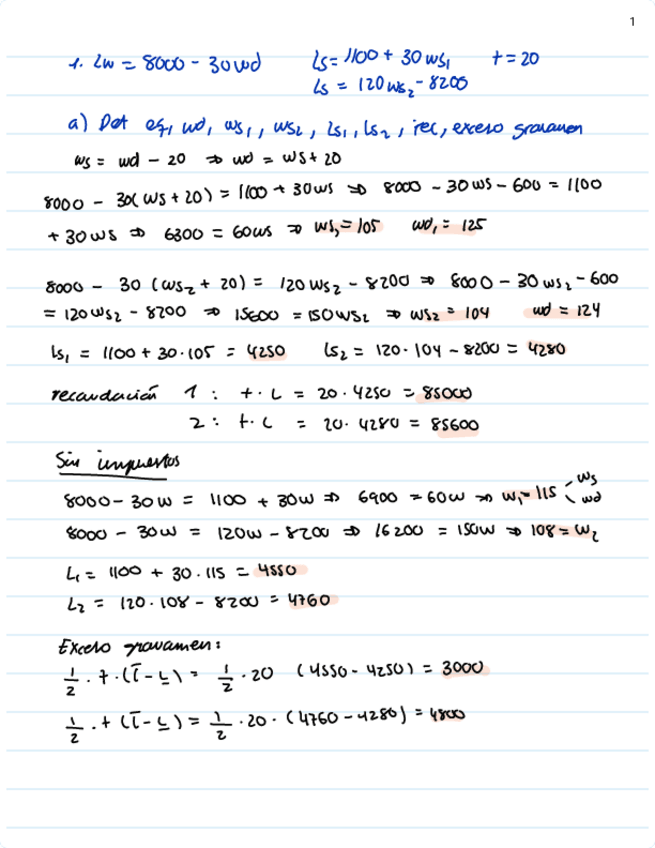 1
1. Lw = 8000 - 30wd Ls = 1100 + 30ws₁ t = 20
Ls = 120ws₂ - 8200
a) Det eq, wd, ws₁, ws₂, Ls₁, Ls₂, rec, exceso gravamen
ws = wd - 20 ⇒ wd = ws + 20
8000 - 30(ws + 20) = 1100 + 30ws ⇒ 8000 - 30ws - 600 = 1100
+ 30ws ⇒ 6300 = 60ws ⇒ ws₁ = 105 wd₁ = 125
8000 - 30 (ws₂ + 20) = 120ws₂ - 8200 ⇒ 8000 - 30ws₂ - 600
= 120ws₂ - 8200 ⇒ 15600 = 150ws₂ ⇒ ws₂ = 104 wd = 124
ls₁ = 1100 + 30·105 = 4250 ls₂ = 120·104 - 8200 = 4280
recaudación 1: t·L = 20·4250 = 85000
2: t·L = 20·4280 = 85600
Sin impuestos
8000 - 30w = 1100 + 30w ⇒ 6900 = 60w ⇒ w₁ = 115 < ws wd
8000 - 30w = 120w - 8200 ⇒ 16200 = 150w ⇒ 108 = w₂
L₁ = 1100 + 30·115 = 4550
L₂ = 120·108 - 8200 = 4760
Exceso gravamen:
1/2 · t · (L̄ - L) = 1/2 · 20 (4550 - 4250) = 3000
1/2 · t (L̄ - L) = 1/2 · 20 · (4760 - 4280) = 4800